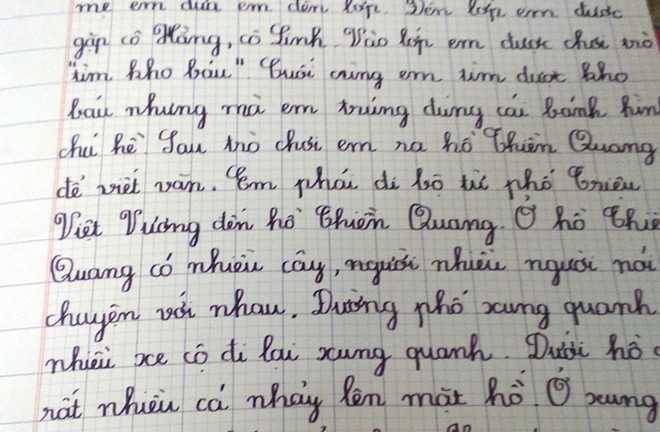 mẹ em đưa em đến lớp. Đến lớp em được
gặp cô Hằng, cô Linh. Vào lớp em được chơi trò
"tìm kho báu". Cuối cùng em tìm được kho
báu nhưng mà em trúng dung cái bánh hìn
chú hề. Sau trò chơi em ra hồ Thiền Quang
để viết văn. Em phải đi bộ từ phố Triệu
Việt Vương đến hồ Thiền Quang. Ở hồ Thiề
Quang có nhiều cây, người nhiều người nói
chuyện với nhau. Đường phố xung quanh
nhiều xe cộ đi lại xung quanh. Dưới hồ c
rất nhiều cá nhảy lên mặt hồ. Ở xung